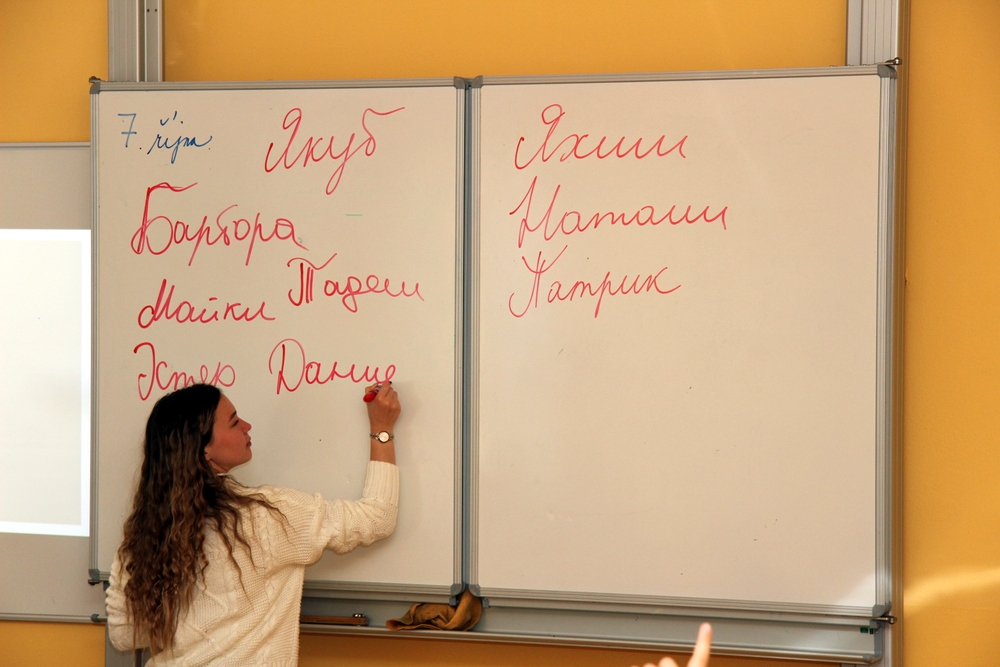 7. října
Якуб
Барбора
Тадеаш
Майкл
Эстер
Дание
Яхим
Наташи
Патрик